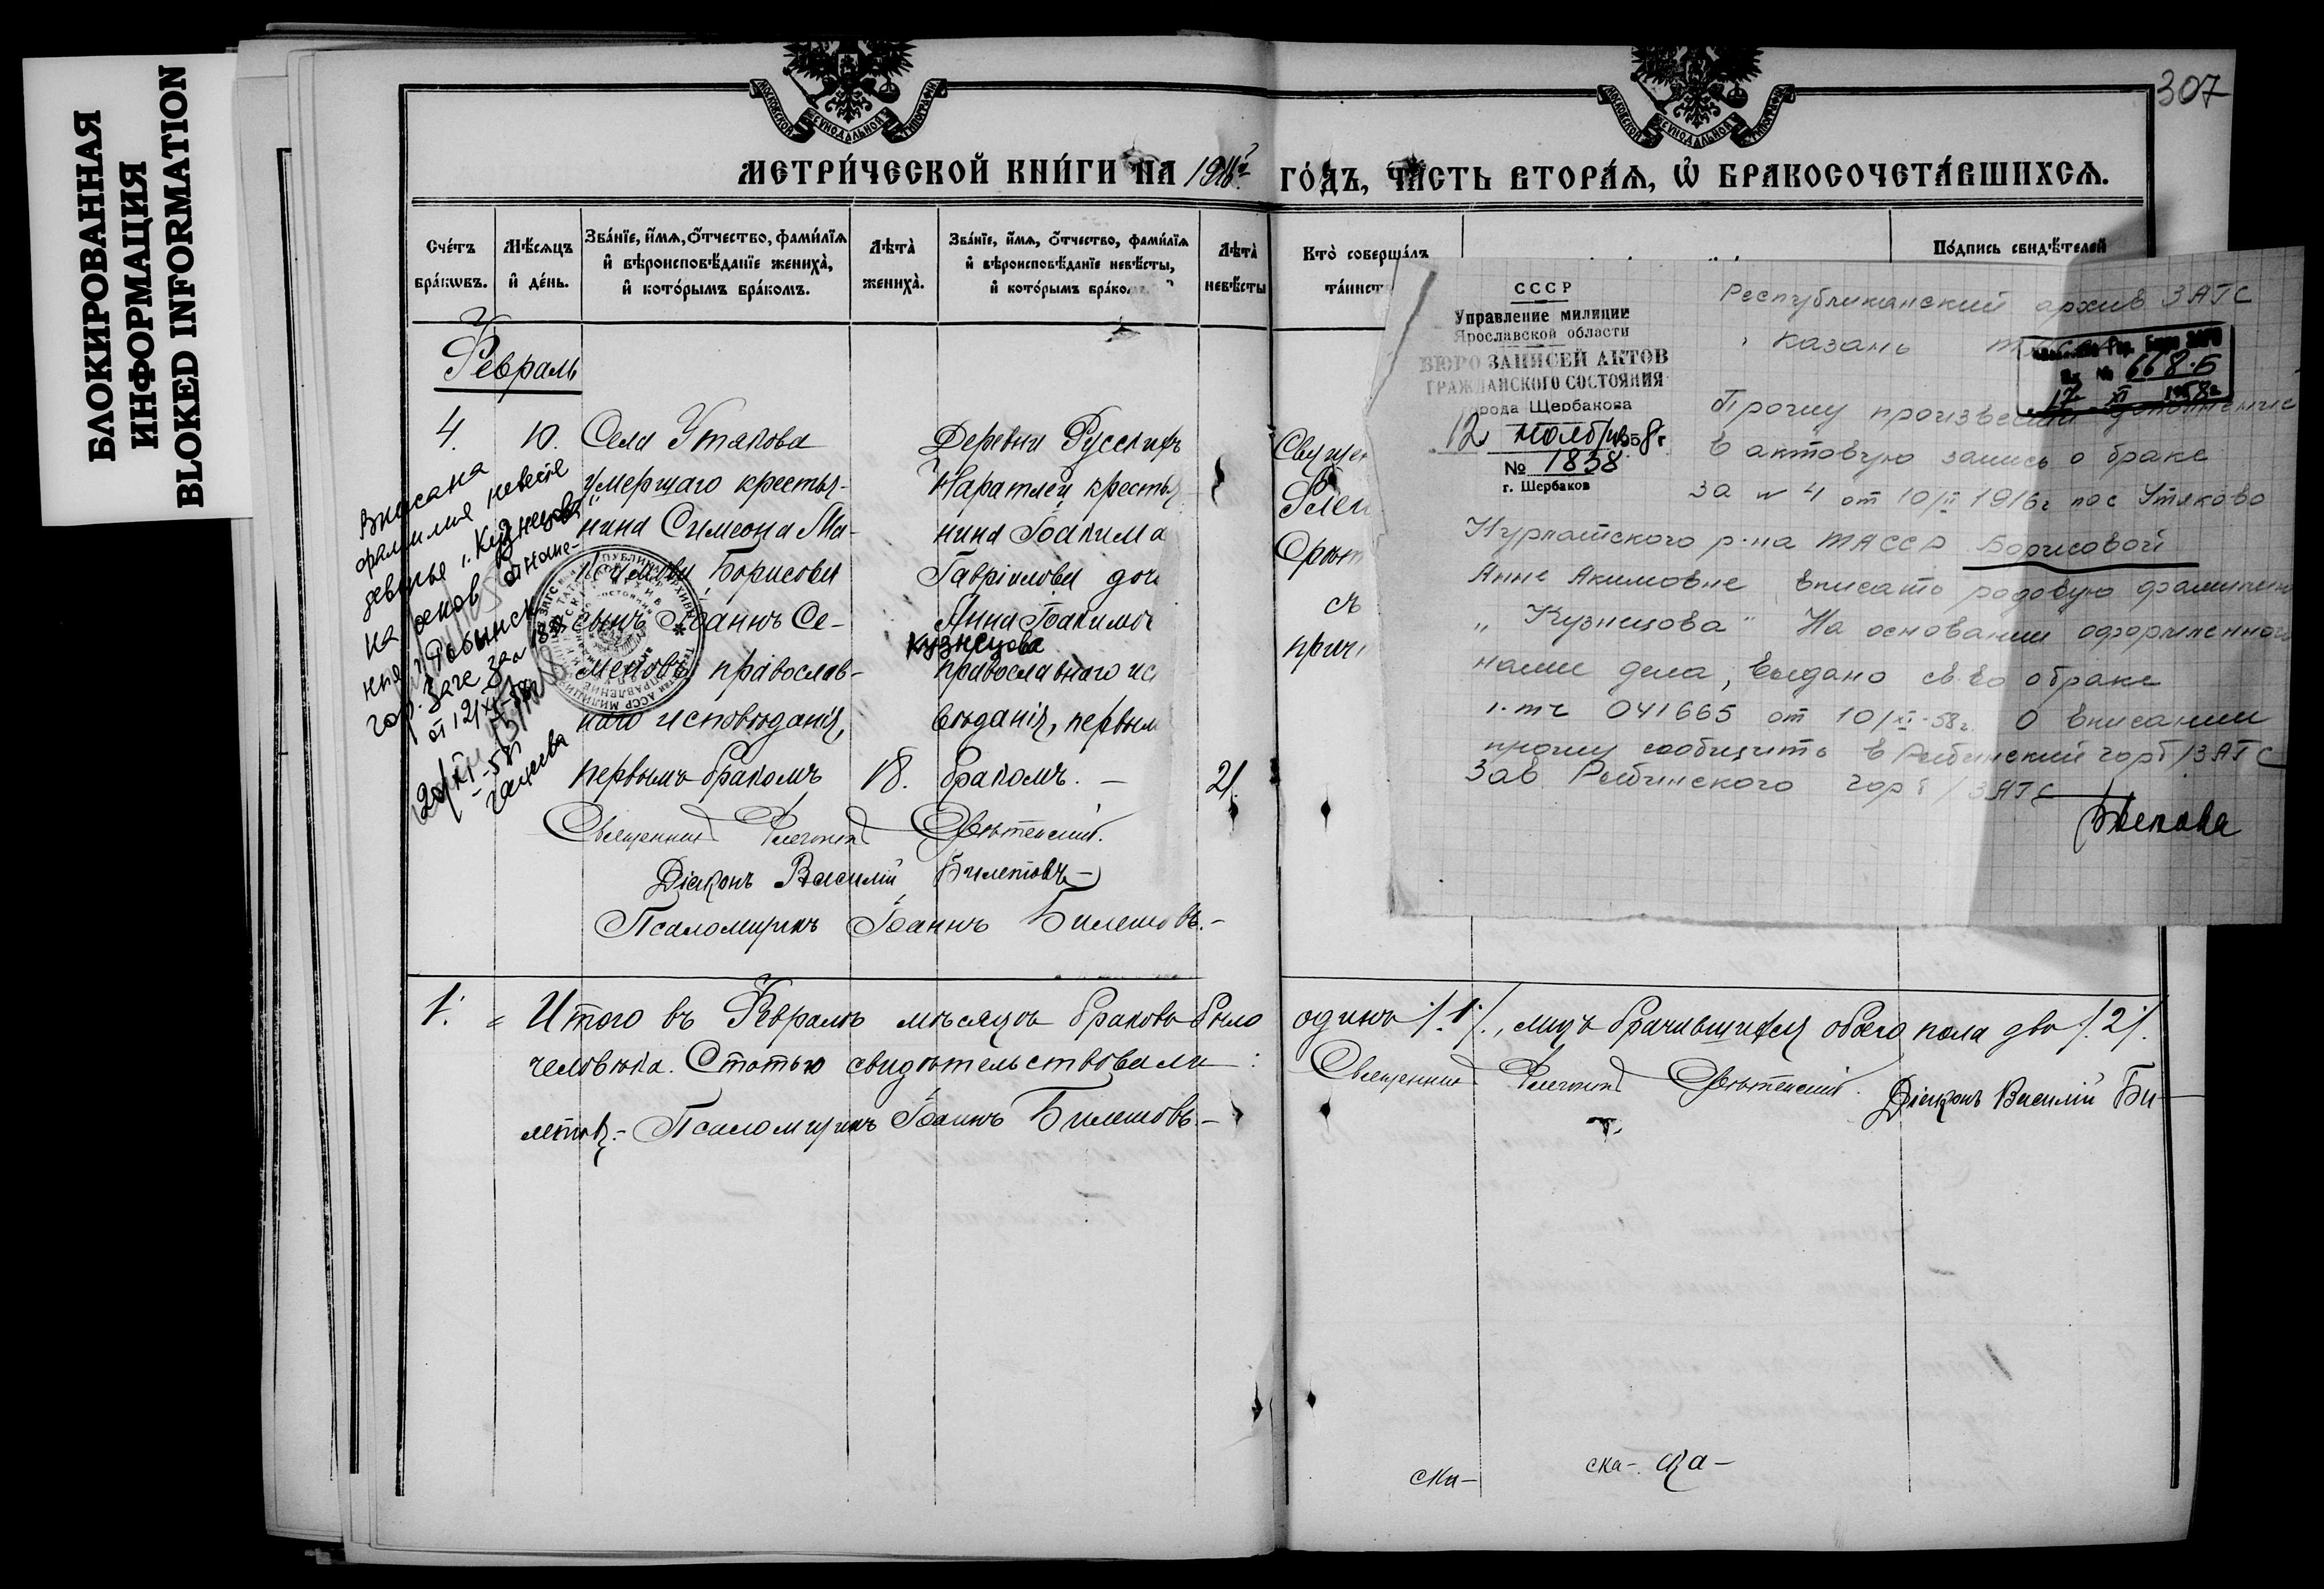 БЛОКИРОВАННАЯ
ИНФОРМАЦИЯ
BLOKED INFORMATION
307
МОСКОВСКОЙ СѴНОДАЛЬНОЙ ТИПОГРАФІИ
МОСКОВСКОЙ СѴНОДАЛЬНОЙ ТИПОГРАФІИ
МЕТРИ́ЧЕСКОЙ КНИ́ГИ НА 1916 ГО́ДЪ, ЧА́СТЬ ВТОРА́Ѧ, Ѽ БРАКОСОЧЕТА́ВШИХСѦ.
Сче́тъ
бра́кѡвъ.
Мѣ́сѧцъ
и҆ де́нь.
Зва́нїе, и҆́мѧ, ѻ҆́тчество, фами́лїѧ
и҆ вѣроисповѣ́данїе жениха̀,
и҆ кото́рымъ бра́комъ.
Лѣта̀
жениха̀.
Зва́нїе, и҆́мѧ, ѻ҆́тчество, фами́лїѧ
и҆ вѣроисповѣ́данїе невѣ́сты,
и҆ кото́рымъ бра́ком
Лѣта̀
невѣ́сты
Кто̀ соверша́лъ
та́инст
По́дпись свидѣ́телей
Февраль
4.
10.
Села Утякова
умершаго крестья-
нина Симеона Ма-
Борисова
сынъ Іоаннъ Се-
меновъ, православ-
наго исповѣданія,
первымъ бракомъ
18.
Деревни Русскихъ
Наратлей крестья
нина Іоакима
Гавріилова доч
Анна Іоакимов
Кузнецова
православнаго ис
вѣданія, первым
бракомъ. —
21.
Священ
Флег
Орѣт
съ
прич
Вписана
фамилия невесте
девичье „Кузнецова"
на основ. отноше-
ния Рыбинск
гор. Загс за № 1838
от 12/XI-58г.
20/XI-58г
Священникъ Флегонтъ
Діаконъ Василій Билетовъ —
Псаломщикъ Іоаннъ Билетовъ. —
1.
Итого въ Февралѣ мѣсяцѣ браковъ было одинъ /.1./, лицъ брачившихся обоего пола два /.2/.
человѣка. Статью свидѣтельствовали:
Священникъ Флегонтъ
Діаконъ Василій Би-
летовъ. — Псаломщикъ Іоаннъ Билетовъ. —
ска-
ска-
СССР
Управление милиции
Ярославской области
БЮРО ЗАПИСЕЙ АКТОВ
ГРАЖДАНСКОГО СОСТОЯНИЯ
города Щербакова
12 ноября 1958 г.
№ 1838
г. Щербаков
Республиканский архив ЗАГС
г. Казань
Гор. Бюро ЗАГС
Вх № 668-Б
17 XI 1958 г.
Прошу произвести дополнение
в актовую запись о браке
за № 4 от 10/II 1916г по с Утяково
Нурлатского р-на ТАССР Борисовой
Анне Акимовне вписать родовую фамилию
„Кузнецова" На основании оформленного
нами дела, выдано св-во о браке
041665 от 10/XI-58г. О вписании
прошу сообщить в Рыбинский горб/ЗАГС
Зав. Рыбинского горб/ЗАГС